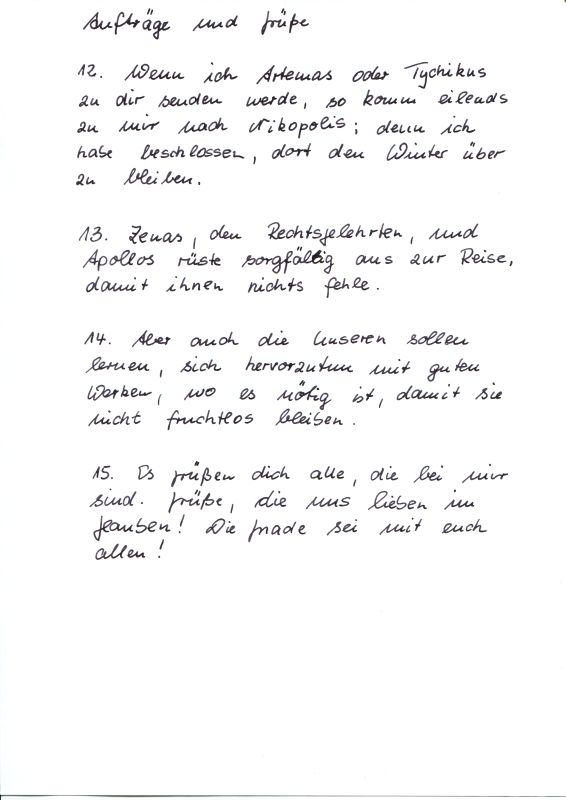 Aufträge und Grüße
12. Wenn ich Artemas oder Tychikus
zu dir senden werde, so komm eilends
zu mir nach Nikopolis; denn ich
habe beschlossen, dort den Winter über
zu bleiben.
13. Zenas, den Rechtsgelehrten, und
Apollos rüste sorgfältig aus zur Reise,
damit ihnen nichts fehle.
14. Aber auch die Unseren sollen
lernen, sich hervorzutun mit guten
Werken, wo es nötig ist, damit sie
nicht fruchtlos bleiben.
15. Es grüßen dich alle, die bei mir
sind. Grüße, die uns lieben im
Glauben! Die Gnade sei mit euch
allen!